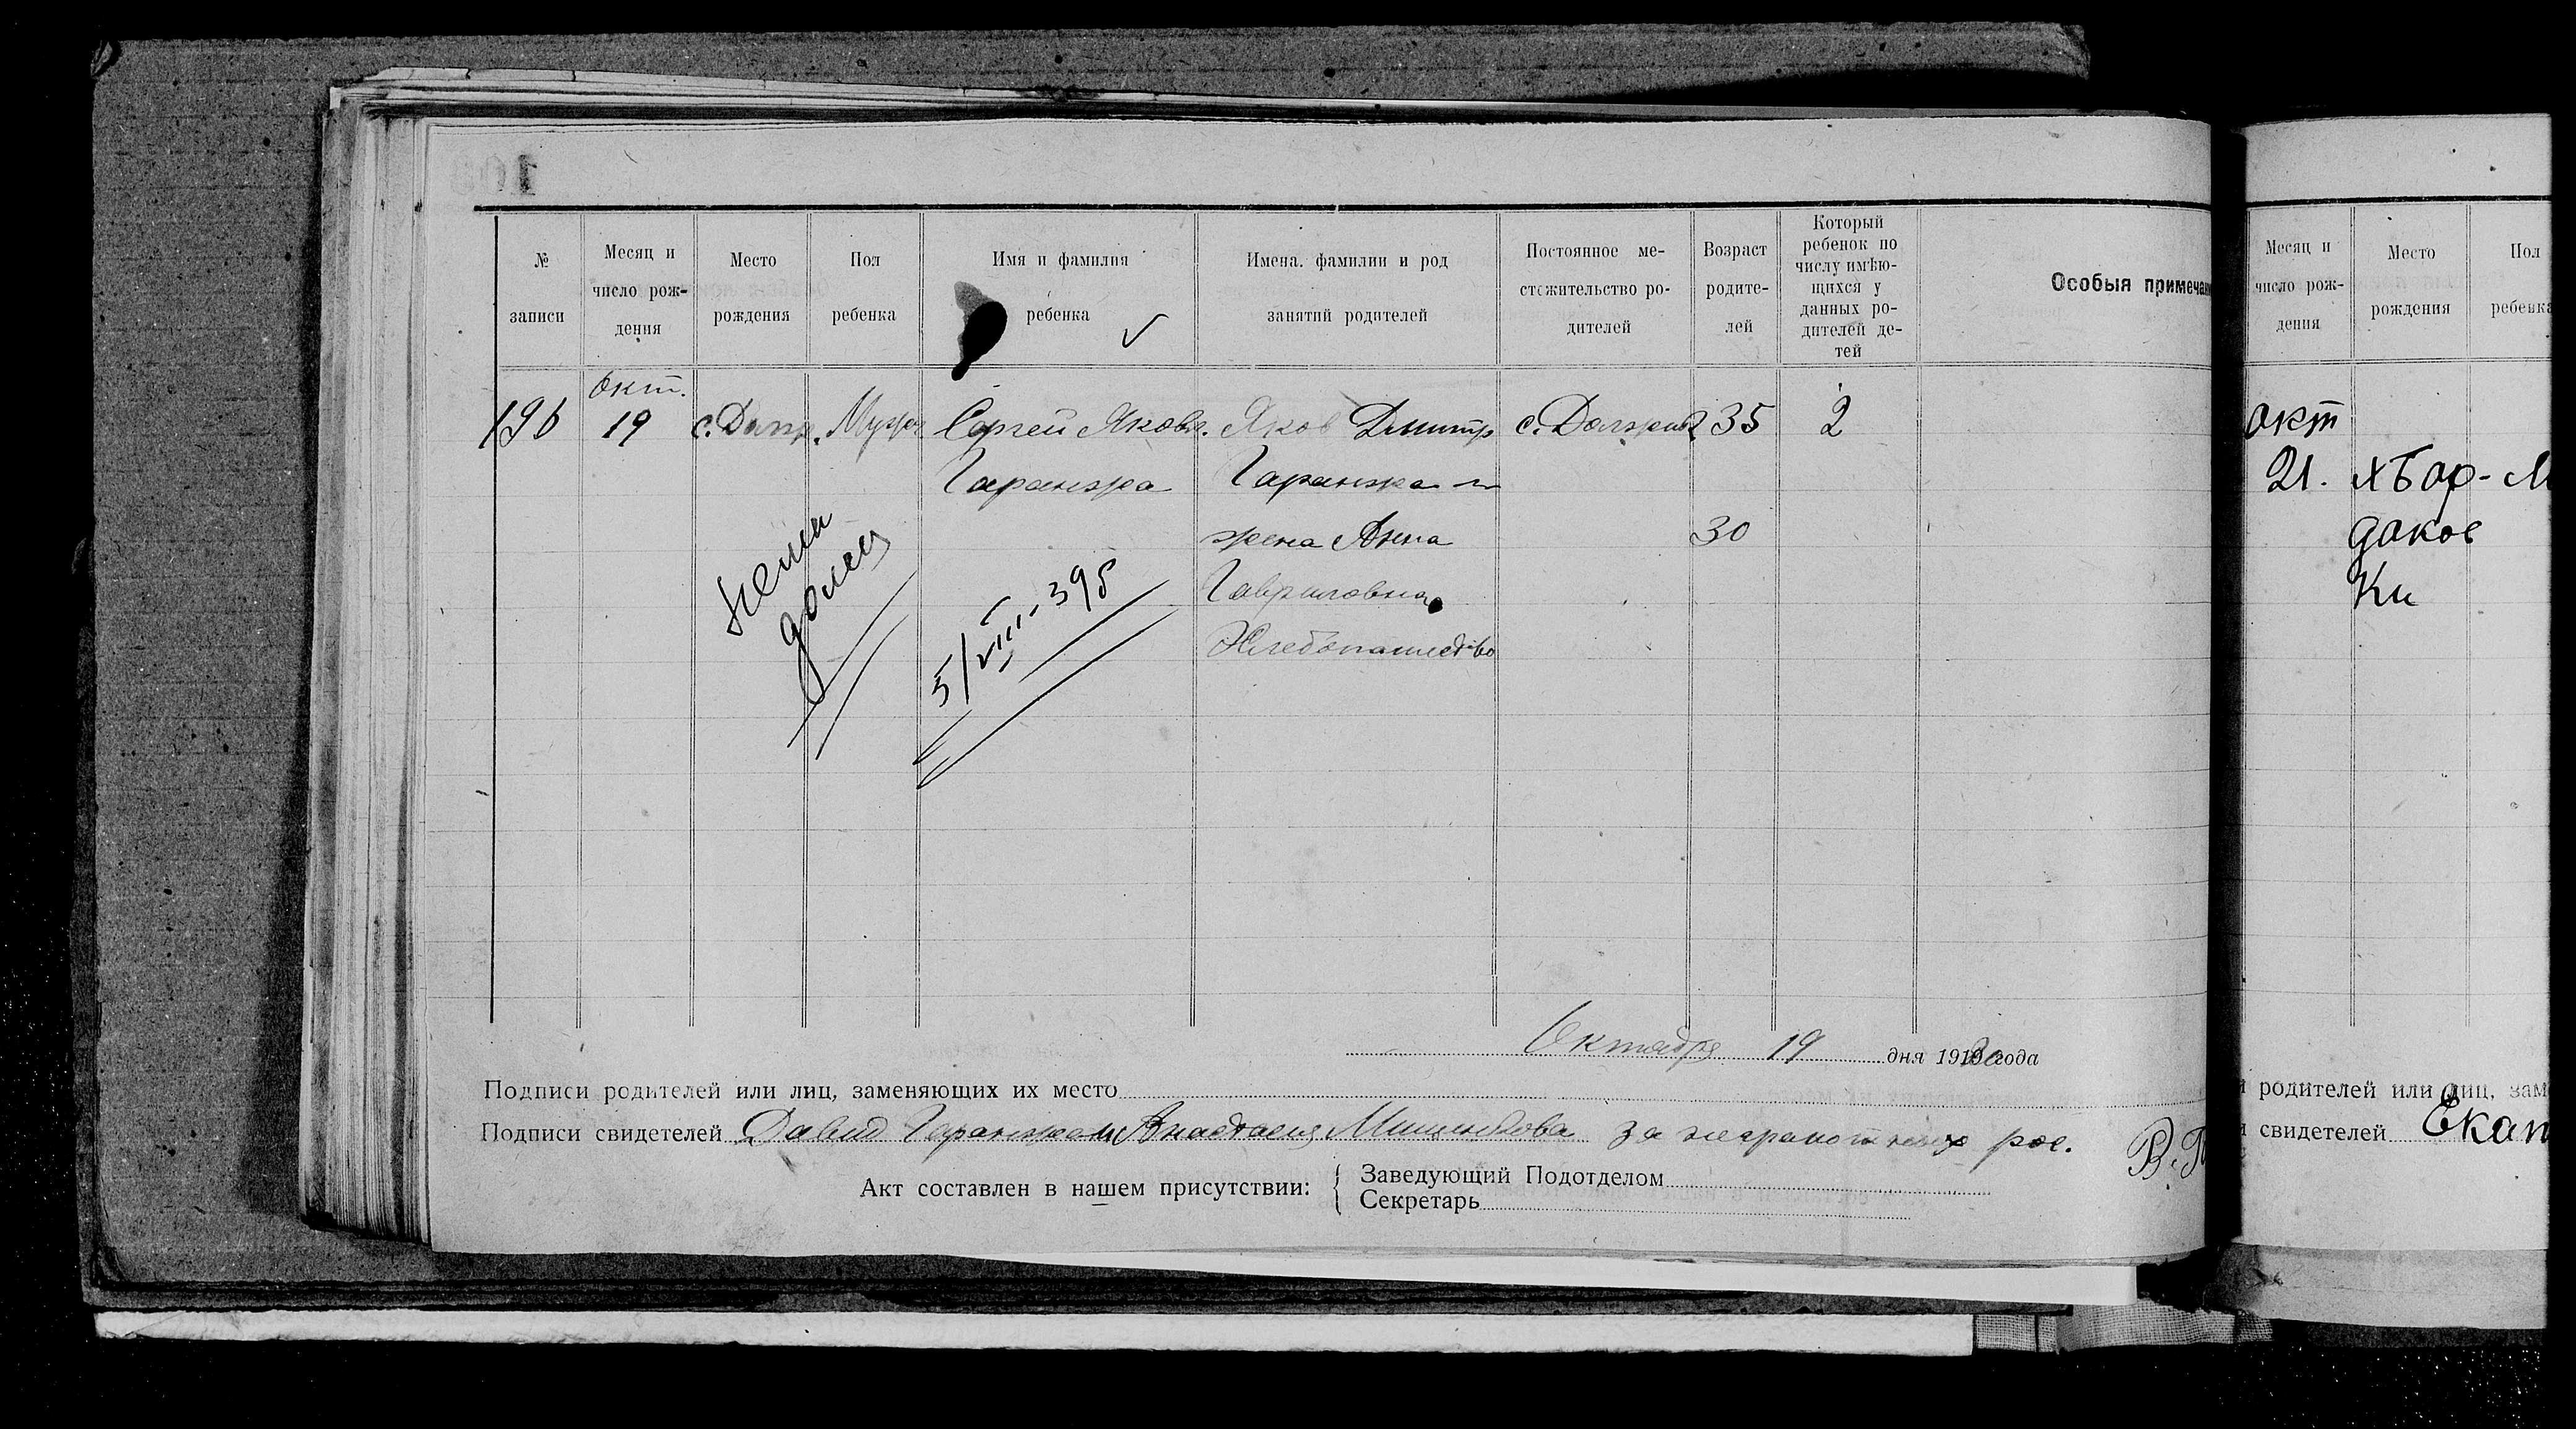 № записи
Месяц и число рож-дения
Место рождения
Пол ребенка
Имя и фамилия ребенка
Имена, фамилии и род занятий родителей
Постоянное ме-стожительство ро-дителей
Возраст родите-лей
Который ребенок по числу имѣю-щихся у данных ро-дителей де-тей
Особыя примечан
196
окт.
19
Сергей Яковл.
Гаранжа
Яков Дмитр
Гаранжа и
жена Анна
Гавриловна
Хлебопашество
35
30
2
5/VIII-39б
Октября 19 дня 19 года
Подписи родителей или лиц, заменяющих их место
Подписи свидетелей Давид Гаранжа и Анастасия за неграмотных рос.
Акт составлен в нашем присутствии:
Заведующий Подотделом
Секретарь
Месяц и число рож-дения
Место рождения
Пол ребенка
окт
21. х Бар-
даков
ки
родителей или лиц, зам
свидетелей Екат